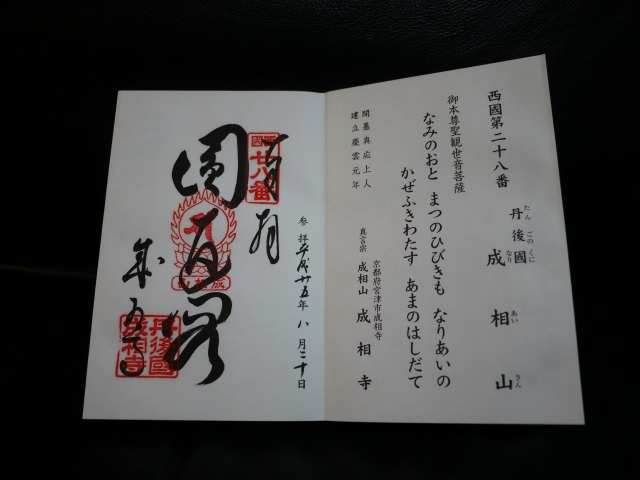 西國第二十八番
丹後國 成相山
たん ごの くに なり あい さん
御本尊聖観世音菩薩
なみのおと まつのひびきも なりあいの
かぜふきわたす あまのはしだて
開基真応上人
建立慶雲元年
京都府宮津市成相寺
真言宗 成相山 成相寺
奉拝
西國
廿八番
参拝平成廿五年八月二十日
圓通閣
成相山
成相寺
丹後國
成相寺